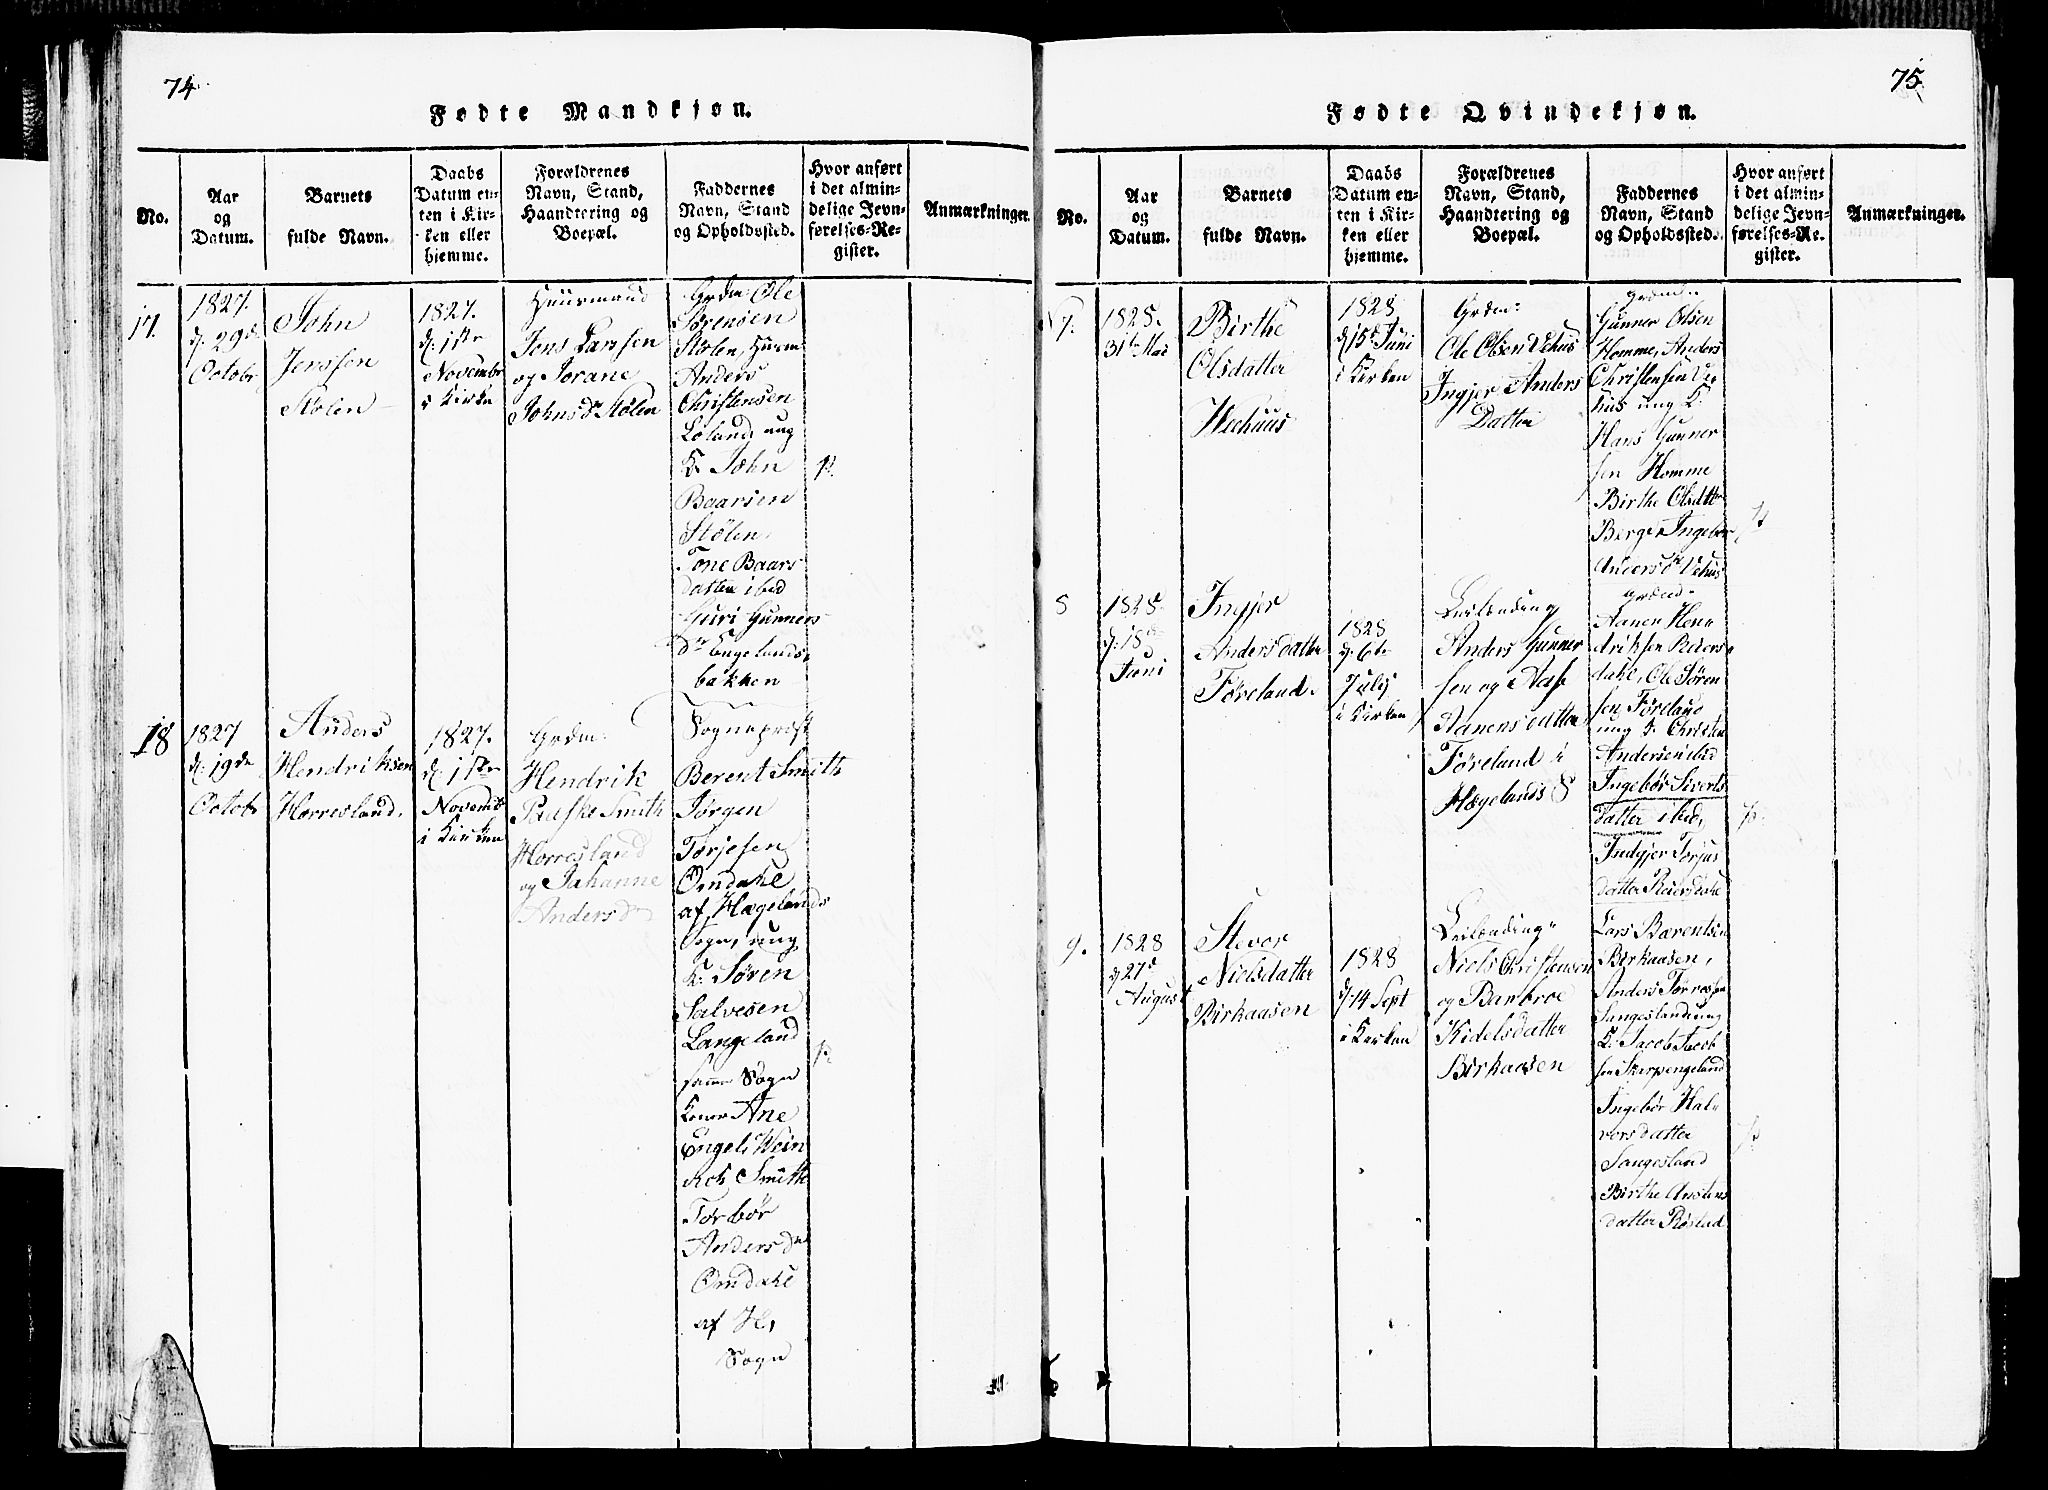 74
Fødte Mandkjøn.
No.
Aar
og
Datum.
Barnets
fulde Navn.
Daabs
Datum en-
ten i Kir-
ken eller
hjemme.
Forældrenes
Navn, Stand,
Haandtering og
Boepæl.
Faddernes
Navn, Stand
og Opholdssted.
Hvor anført
i det almin-
delige Jevn-
førelses-Re-
gister.
Anmærkninger.
17.
1827.
d. 29de
Octobr
John
Jenssen
Stølen
1827.
d. 1ste
Novembr
i Kirke
Huusmand
Jens Larssen
og Jorane
Johns Dr Stølen
Grdm: Ole
Sørensen
Stølen, Huusm
Anders
Christensen
Løland, ung
K. John
Baarsen
Stølen
Tone Baars
datter ibid
Guri Gunners
Dr Engelands
bakken
18
1827
d. 19de
Octobr
Anders
Hendriksen
Horresland.
1827.
d. 1ste
Novembr
i Kirken
Grdm:
Hendrik
Paaske Smith
Horresland
og Johanne
Anders Dr
Sogneprest
Berent Smith
Jørgen
Torjesen
Omdahl
af Hægelands
Sogn, ung
K. Søren
Salvesen
Langeland
samme Sogn
Koner Ane
Engel Wein
Smith
Torbør
Anders Dr
Omdahl
af H.
Sogn
75
Fødte Qvindekjøn.
No.
Aar
og
Datum.
Barnets
fulde Navn.
Daabs
Datum en-
ten i Kir-
ken eller
hjemme.
Forældrenes
Navn, Stand,
Haandtering og
Boepæl.
Faddernes
Navn, Stand
og Opholdssted.
Hvor anført
i det almin-
delige Jevn-
førelses-Re-
gister.
Anmærkninger.
7.
1828.
31te Mai
Birthe
Olsdatter
Weehuus
1828
d 15de Juni
i Kirken
Grdm:
Ole Olsen Vehus
Ingjer Anders
Datter
Grdmd.
Gunner Olsen
Homme, Anders
Christensen Ve-
hus ung K.
Hans Gunner
sen Homme
Birthe Olsdttr
Berge, Ingebor
Anders Dr Vehus
8
1828
d. 18de
Juni
Ingjer
Andersdatter
Føreland.
1828
d. 6te
Julij
i Kirken
Leilænding
Anders Gunner
sen og Aase
Aanensdatter
Føreland i
Hægelands S
Grdmd.
Aanen Hen
driksen Reiers
dahl, Ole Søren
sen Føreland
ung K. Christen
Andersen ibid
Ingebør Siverts
datter ibid,
Indgjer Torjus
datter Reiersdahl
9.
1828
d 27de
August
Stevor
Nielsdatter
Birkaasen
1828
d. 14 Sept
i Kirken
Leilænding
Niels Christensen
og Barbroe
Kidelsdatter
Birkaasen
Lars Bærentsen
Birkaasen,
Anders Torressen
Sangesland ung
K. Jacob Jacob
sen Skarpengeland
Ingebør Hal-
vorsdatter
Sangesland
Birthe Anstens
datter Røstad